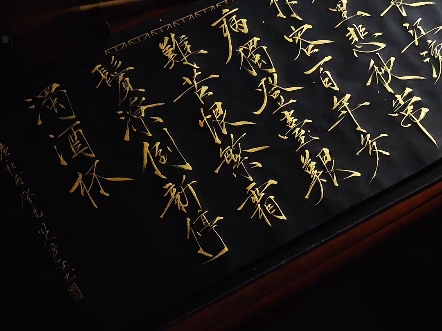 里悲秋常
作客百年多
病獨登臺艱
難苦恨繁霜
鬢潦倒新停
濁酒杯